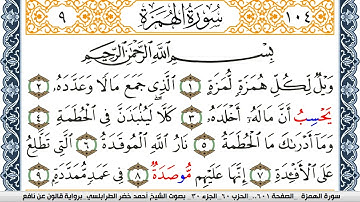 ٩ سُورَةُ الْهُمَزَةِ ١٠٤
بِسْمِ اللَّهِ الرَّحْمَٰنِ الرَّحِيمِ
وَيْلٌ لِّكُلِّ هُمَزَةٍ لُّمَزَةٍ ١ الَّذِي جَمَعَ مَالًا وَعَدَّدَهُ ٢
يَحْسِبُ أَنَّ مَالَهُ أَخْلَدَهُ ٣ كَلَّا لَيُنۢبَذَنَّ فِي الْحُطَمَةِ ٤
وَمَا أَدْرَىٰكَ مَا الْحُطَمَةُ ٥ نَارُ اللَّهِ الْمُوقَدَةُ ٦ الَّتِي تَطَّلِعُ
عَلَى الْأَفْـِٕدَةِ ٧ إِنَّهَا عَلَيْهِم مُّوصَدَةٌ ٨ فِي عَمَدٍ مُّمَدَّدَةٍ ٩
سورة الهمزة . الصفحة ٦٠١ .. الحزب ٦٠ الجزء ٣٠ . بصوت الشيخ أحمد خضر الطرابلسي . برواية قالون عن نافع